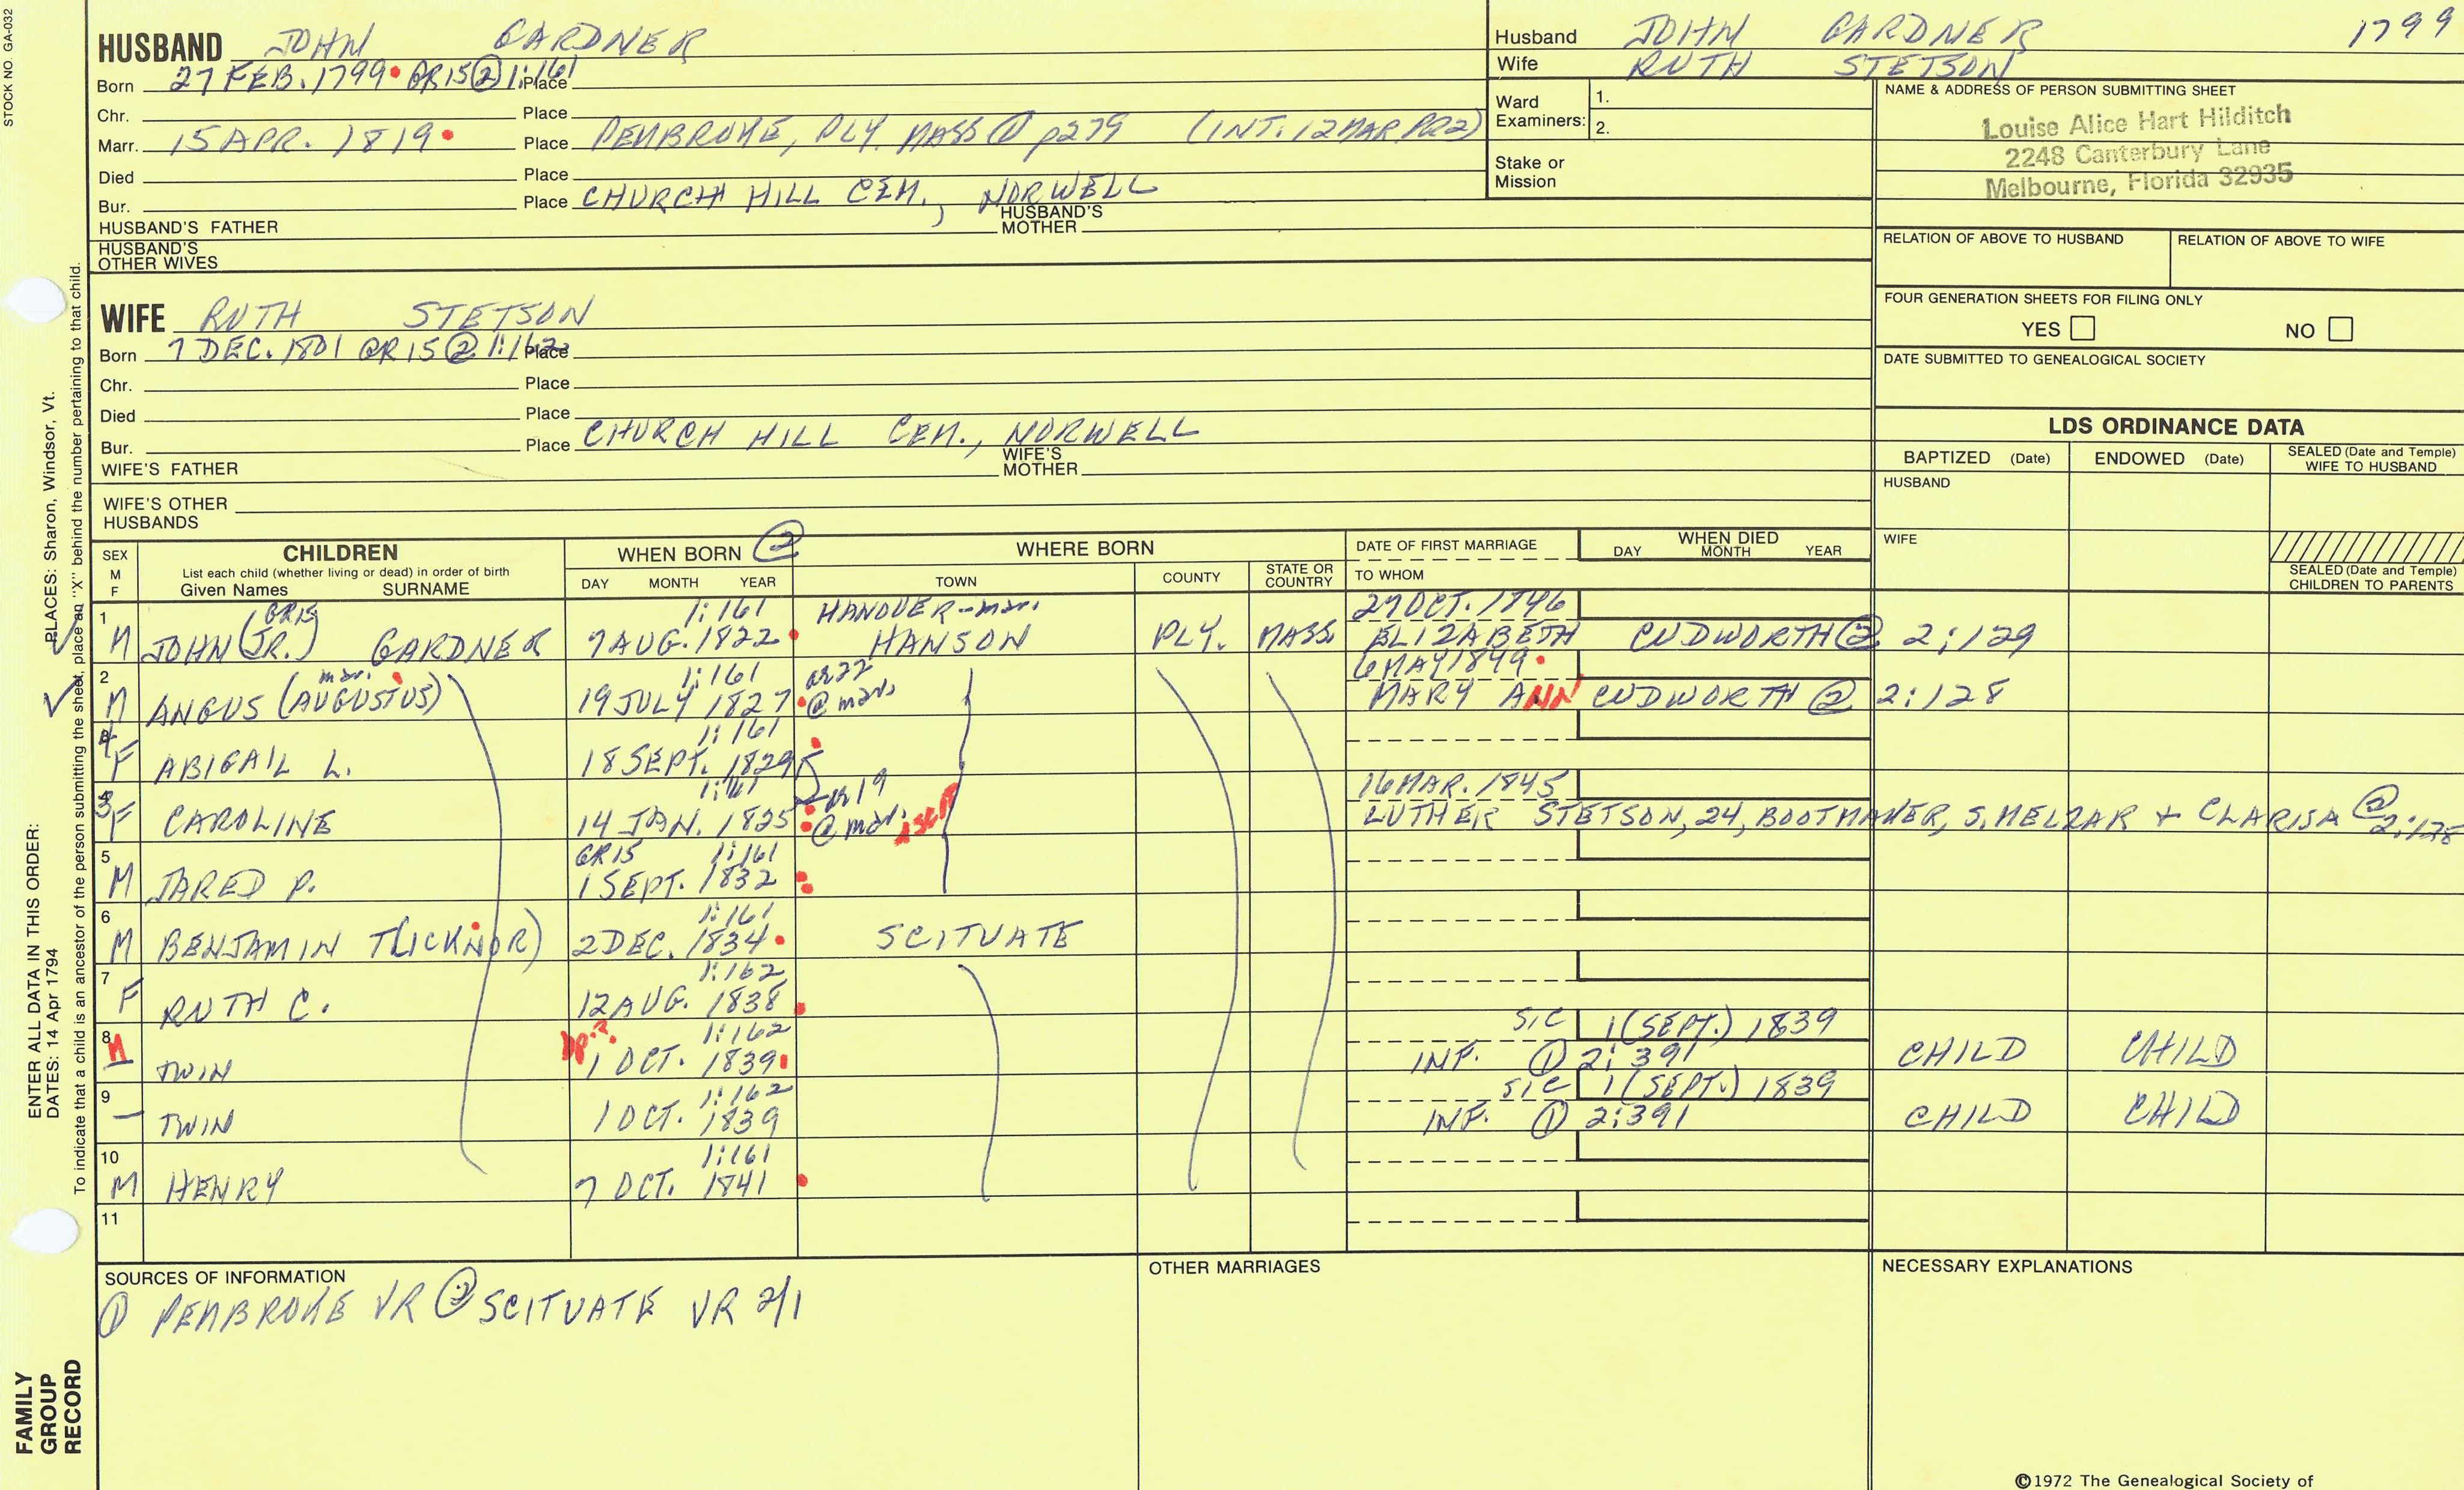 STOCK NO. GA-032
HUSBAND JOHN GARDNER
Born 27 FEB. 1799 GR15 ② 1:161 Place
Chr. Place
Marr. 15 APR. 1819 Place PEMBROKE, PLY. MASS ① p279 (INT. 12 MAR. PR2)
Died Place
Bur. Place CHURCH HILL CEM., NORWELL
HUSBAND'S FATHER HUSBAND'S MOTHER
HUSBAND'S OTHER WIVES
WIFE RUTH STETSON
Born 7 DEC. 1801 GR15 ② 1:162 Place
Chr. Place
Died Place
Bur. Place CHURCH HILL CEM., NORWELL
WIFE'S FATHER WIFE'S MOTHER
WIFE'S OTHER HUSBANDS
Husband JOHN GARDNER 1799
Wife RUTH STETSON
Ward Examiners: 1. 2.
Stake or Mission
NAME & ADDRESS OF PERSON SUBMITTING SHEET
Louise Alice Hart Hilditch
2248 Canterbury Lane
Melbourne, Florida 32935
RELATION OF ABOVE TO HUSBAND RELATION OF ABOVE TO WIFE
FOUR GENERATION SHEETS FOR FILING ONLY
YES NO
DATE SUBMITTED TO GENEALOGICAL SOCIETY
LDS ORDINANCE DATA
BAPTIZED (Date) ENDOWED (Date) SEALED (Date and Temple) WIFE TO HUSBAND
HUSBAND
WIFE
SEALED (Date and Temple) CHILDREN TO PARENTS
SEX M F
CHILDREN
List each child (whether living or dead) in order of birth
Given Names SURNAME
WHEN BORN ②
DAY MONTH YEAR
WHERE BORN
TOWN COUNTY STATE OR COUNTRY
DATE OF FIRST MARRIAGE
TO WHOM
WHEN DIED
DAY MONTH YEAR
1 GR15 1:161 HANOVER-mar. 27 OCT. 1846
M JOHN (JR.) GARDNER 7 AUG. 1822 HANSON PLY. MASS ELIZABETH CUDWORTH ② 2:129
2 mar. 1:161 ae 22 6 MAY 1849
M ANGUS (AUGUSTUS) 19 JULY 1827 @ mar. MARY ANN CUDWORTH ② 2:128
4 1:161
F ABIGAIL L. 18 SEPT. 1829
3 1:161 ae 19 16 MAR. 1845
F CAROLINE 14 JAN. 1825 @ mar. LUTHER STETSON, 24, BOOTMAKER, S. MELZAR + CLARISA ② 2:128
5 GR15 1:161
M JARED P. 1 SEPT. 1832
6 1:161
M BENJAMIN T(ICKNOR) 2 DEC. 1834 SCITUATE
7 1:162
F RUTH C. 12 AUG. 1838
8 1:162 SIC 1 (SEPT.) 1839
M TWIN dp.? 1 OCT. 1839 INF. ① 2:391 CHILD CHILD
9 1:162 SIC 1 (SEPT.) 1839
– TWIN 1 OCT. 1839 INF. ① 2:391 CHILD CHILD
10 1:161
M HENRY 7 OCT. 1841
11
SOURCES OF INFORMATION
① PEMBROKE VR ② SCITUATE VR 2/1
OTHER MARRIAGES
NECESSARY EXPLANATIONS
ENTER ALL DATA IN THIS ORDER:
DATES: 14 Apr 1794
PLACES: Sharon, Windsor, Vt.
To indicate that a child is an ancestor of the person submitting the sheet, place an "X" behind the number pertaining to that child.
FAMILY GROUP RECORD
©1972 The Genealogical Society of